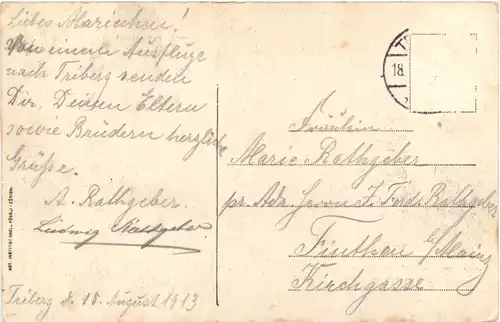 Liebes Mariechen!
Von einem Ausfluge
nach Triberg senden
Dir, Deinen Eltern
sowie Brüdern herzliche
Grüße.
A. Rathgeber.
Ludwig Rathgeber
Triberg d. 18. August 1913
T
18.
Fräulein
Marie Rathgeber
pr. Adr. Herrn J. Ferd. Rathgeber
Finthen b/Mainz
Kirchgasse
ART. INSTITUT ORELL FÜSSLI - ZÜRICH.